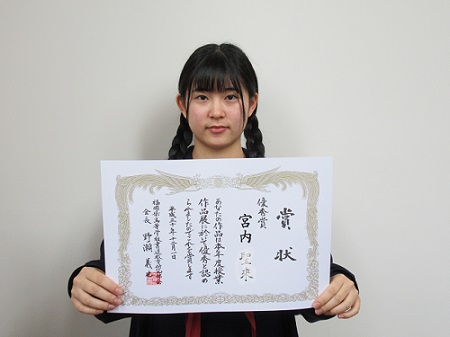 賞状
優秀賞
宮内 聖来
あなたの作品は本年度授業
作品展に於て優秀と認め
られましたのでこれを賞します
平成三十年十二月一日
福岡県高等学校書道教育研究会
会長 野瀬 義